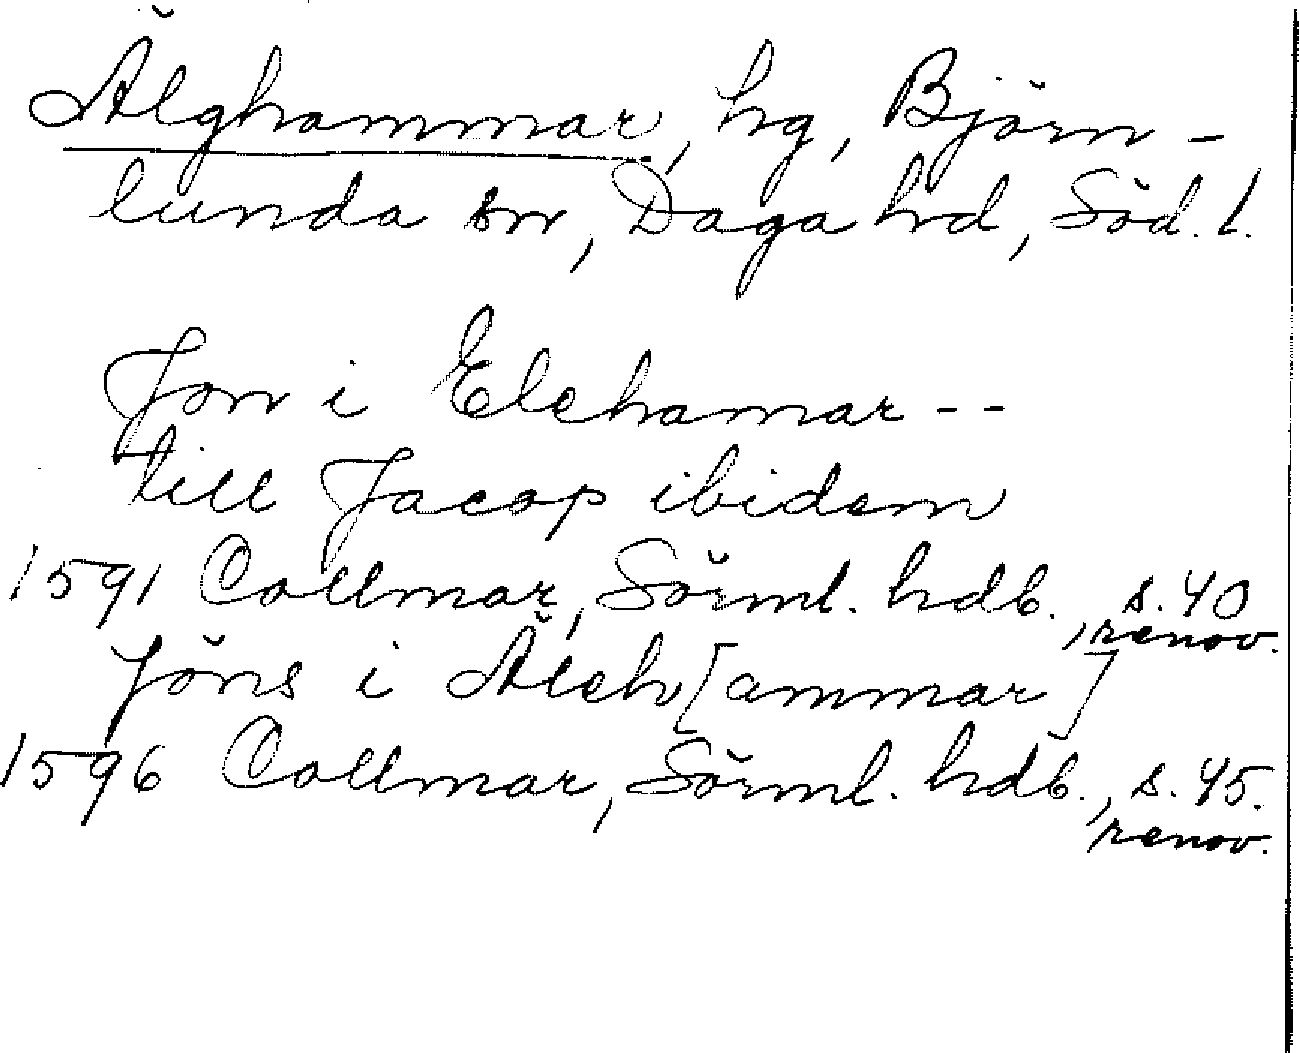 Älghammar, hg, Björn-
lunda sn, Daga hd, Söd. l.
Jon i Elehamar--
till Jacop ibidem
1591 Collmar, Sörml. hdb., s. 40
renov.
Jöns i Äleh[ammar]
1596 Collmar, Sörml. hdb., s. 45.
renov.